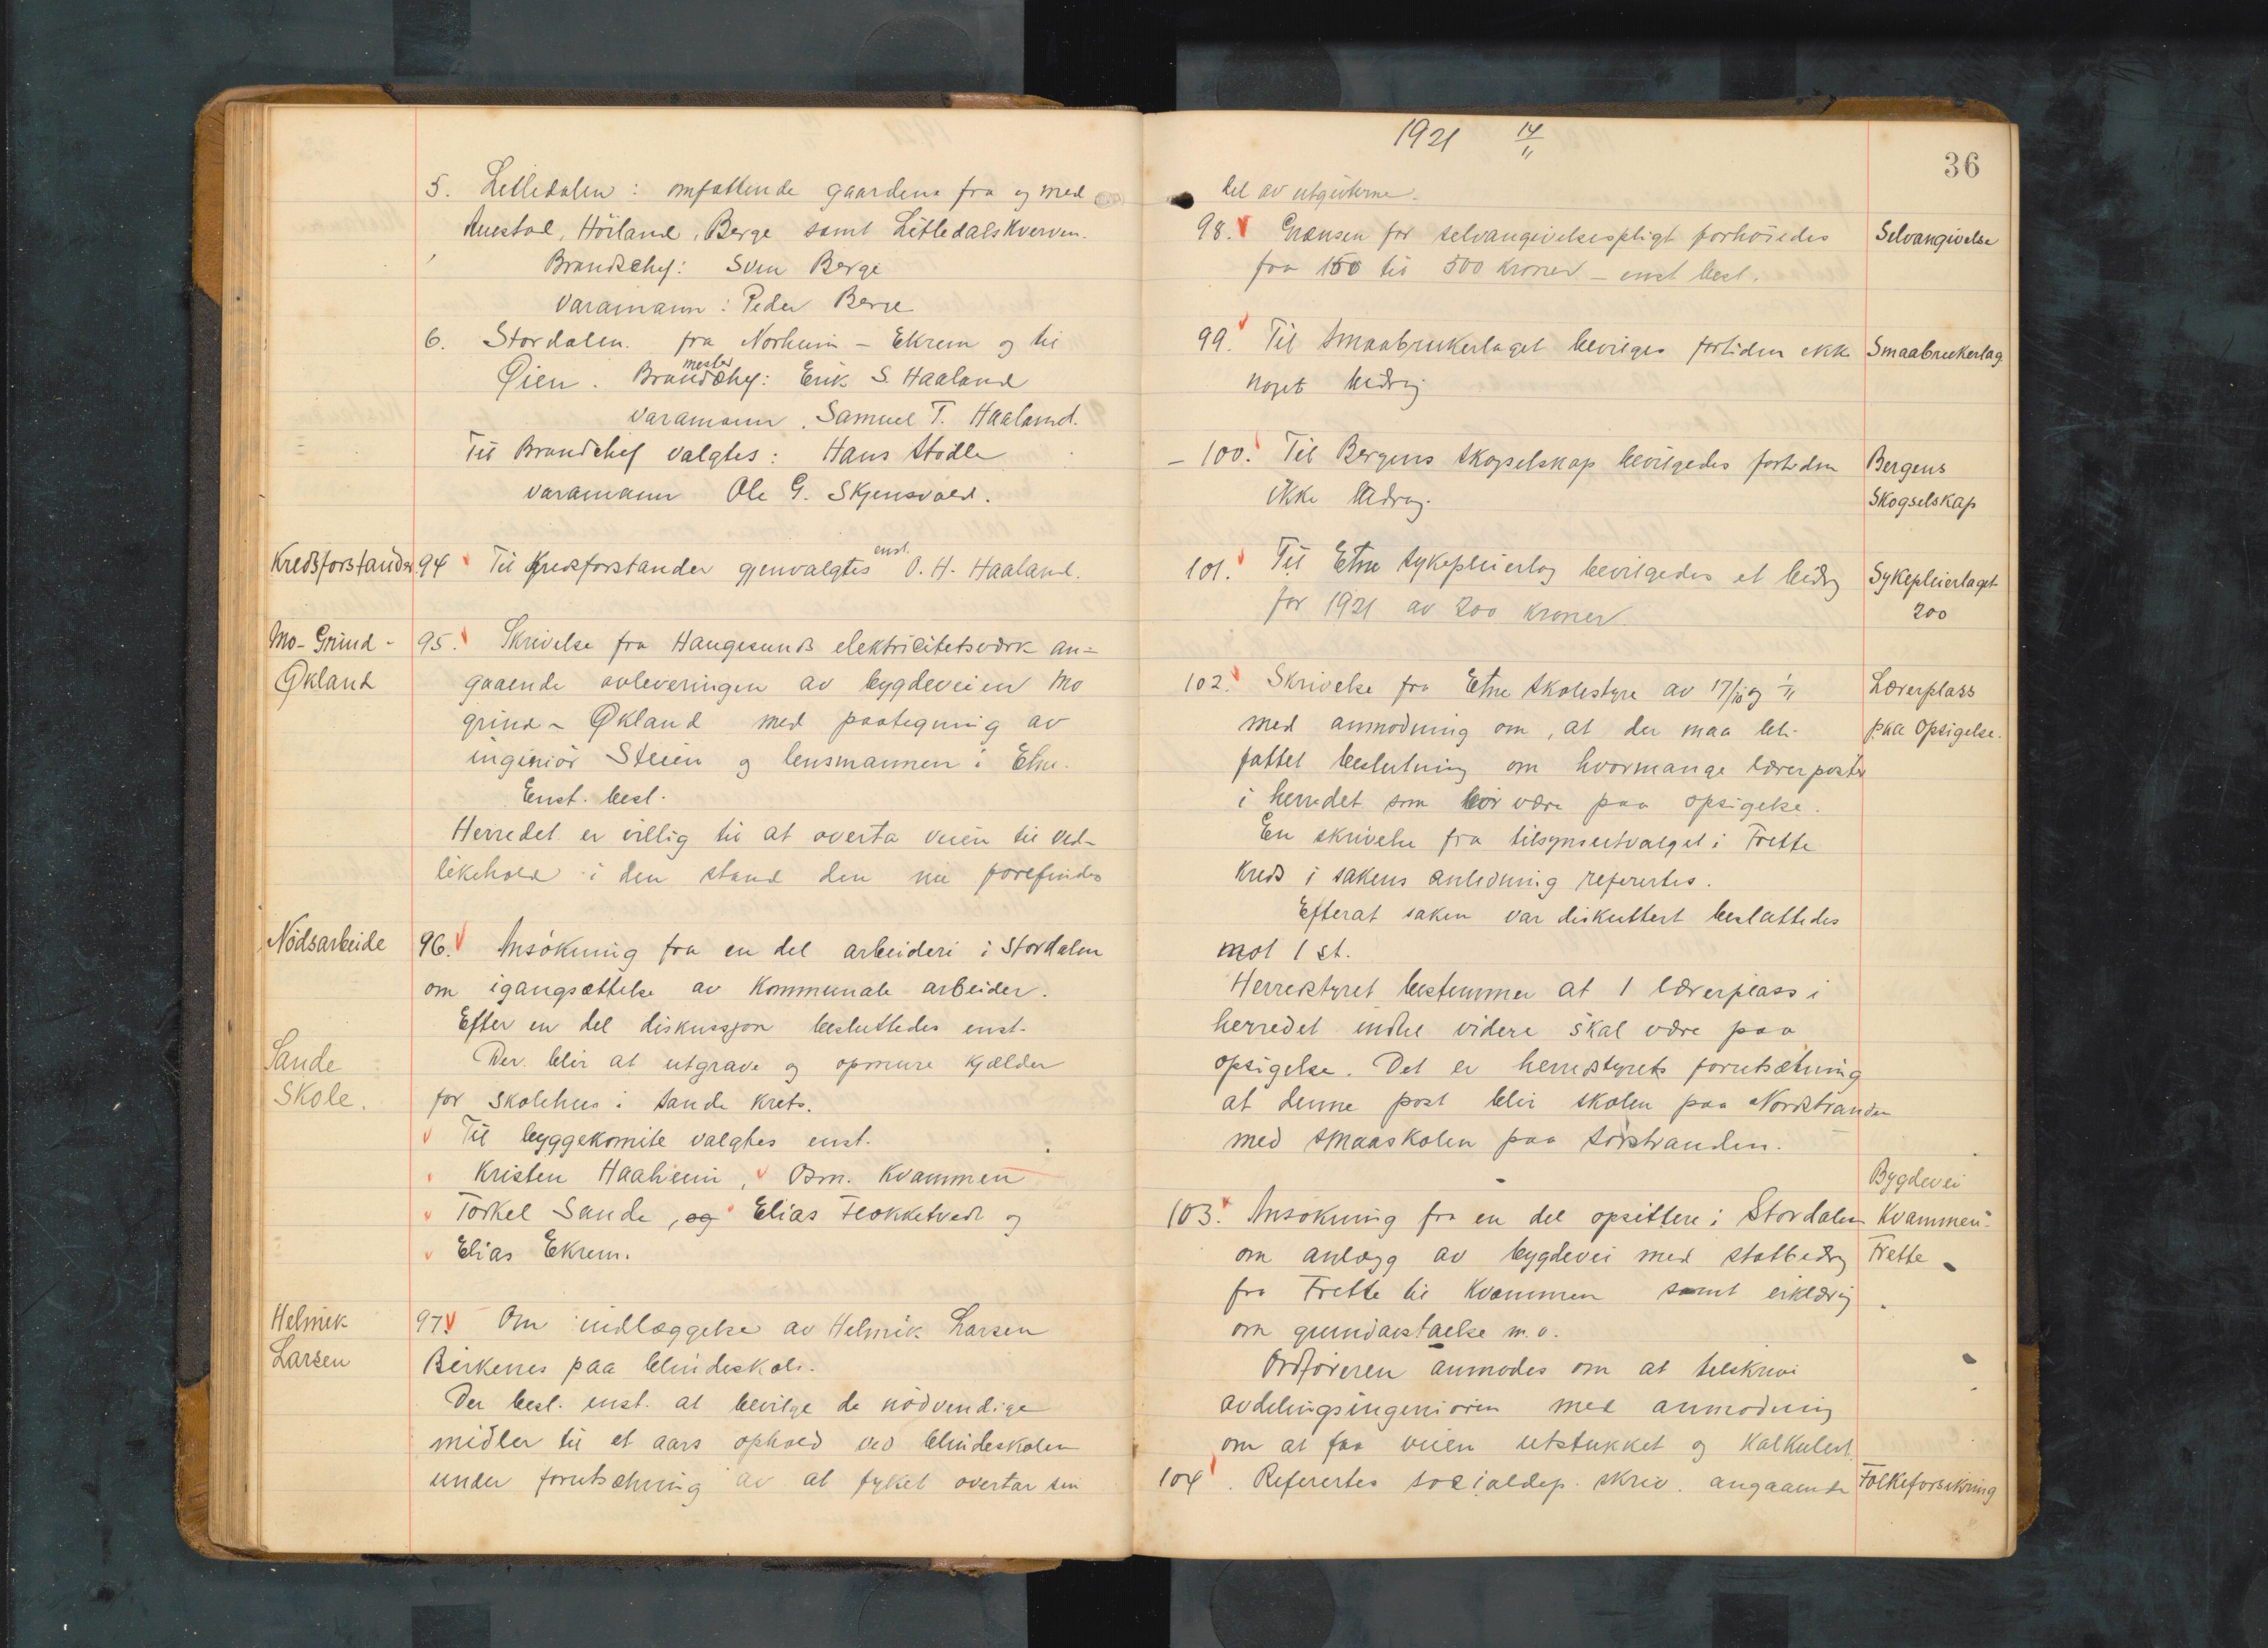 5. Litledalen: omfattende gaardene fra og med
Austad, Höiland, Berge samt Litledalskverven.
Brandchef: Sven Berge
Varamann: Peder Berge
6. Stordalen. fra Norheim - Ekrem og til
Øien. Brandchef: Erik S. Haaland
mester
varamann. Samuel T. Haaland.
Til Brandchef valgtes: Hans Stödle
varamann Ole G. Skjensvold.
Kredsforstander
94 Til Kredsforstander gjenvalgtes enst. O. H. Haaland.
Mo-Grind-
Økland
95. Skrivelse fra Haugesunds elektricitetsværk an=
gaaende avleveringen av bygdeveien Mo
grind - Økland med paategning av
ingeniör Steien og lensmannen i Etne.
Enst. besl.
Herredet er villig til at overta veien til ved-
likehold i den stand den nu forefindes
Nödsarbeide
96. Ansökning fra en del arbeidere i Stordalen
om igangsættelse av Kommunale arbeider.
Efter en del diskussjon besluttedes enst.
Sande
Skole.
Der blir at utgrave og opmure kjælder
for skolehus i Sande krets.
Til byggekomite valgtes enst.
Kristen Haaheim, Osm. Kvammen
Torkel Sande, og Elias Flokketvedt og
Elias Ekrem.
Helmik
Larsen
97. Om indlæggelse av Helmik Larsen
Birkenes paa blindeskole.
Der besl. enst. at bevilge de nödvendige
midler til et aars ophold ved blindeskolen
under forutsætning av at fylket overtar sin
1921 14/11
36
del av utgivterne.
98. Grænsen for selvangivelsespligt forhöiedes
fra 150 til 500 kroner - enst besl.
Selvangivelse
99. Til Smaabrukerlaget bevilges fortiden ikke
noget bidrag
Smaabrukerlag
- 100. Til Bergens Skogselskap bevilgedes fortiden
ikke bidrag.
Bergens
Skogselskap
101. Til Etne Sykepleierlag bevilgedes et bidrag
for 1921 av 200 kroner.
Sykepleierlaget
200
102. Skrivelse fra Etne Skolestyre av 17/10 og 1/11
med anmodning om, at der maa bli
fattet beslutning om hvormange lærerposter
i herredet som bör være paa opsigelse.
Lærerplass
paa Opsigelse.
En skrivelse fra tilsynsutvalget i Frette
Kreds i sakens anledning refertes.
Efterat saken var diskuttert besluttedes
mot 1 st.
Herredstyret bestemmer at 1 lærerplass i
herredet indtil videre skal være paa
opsigelse. Det er herredstyrets forutsætning
at denne post blir skolen paa Nordstranden
med smaaskolen paa Sörstranden.
Bygdevei
Kvammen-
Frette
103. Ansökning fra en del opsittere i Stordalen
om anlægg av bygdevei med statbidrag
fra Frette til Kvammen samt erklæring
om grundavstaelse m.v.
Ordföreren anmodes om at tilskrive
avdelingsingeniören med anmodning
om at faa veien utstukket og Kalkulert.
104. Refertes Socialdep. skriv. angaaende
Folkeforsikring